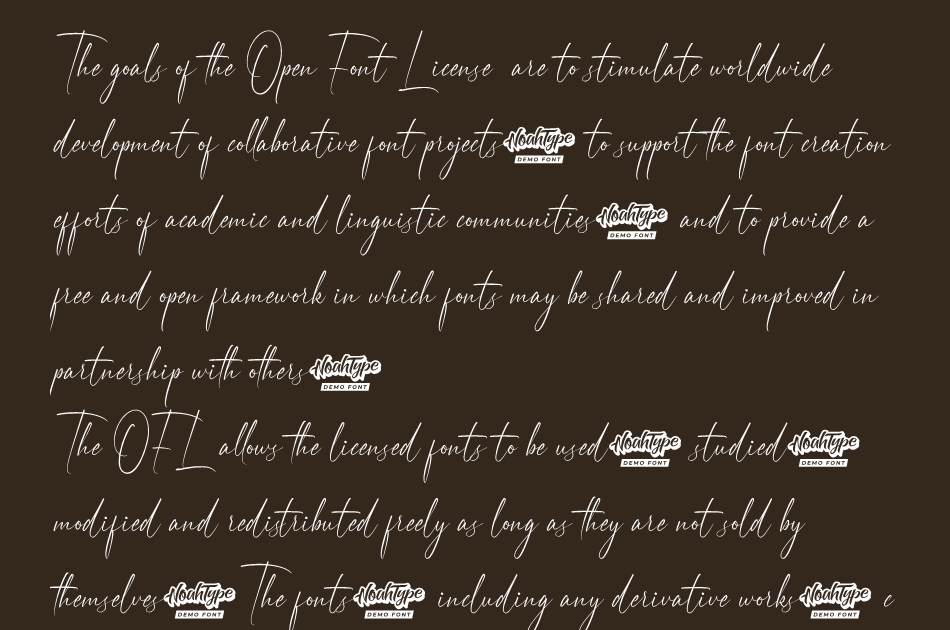 The goals of the Open Font License are to stimulate worldwide
development of collaborative font projects NoahType DEMO FONT to support the font creation
efforts of academic and linguistic communities NoahType DEMO FONT and to provide a
free and open framework in which fonts may be shared and improved in
partnership with others NoahType DEMO FONT
The OFL allows the licensed fonts to be used NoahType DEMO FONT studied NoahType DEMO FONT
modified and redistributed freely as long as they are not sold by
themselves NoahType DEMO FONT The fonts NoahType DEMO FONT including any derivative works NoahType DEMO FONT c